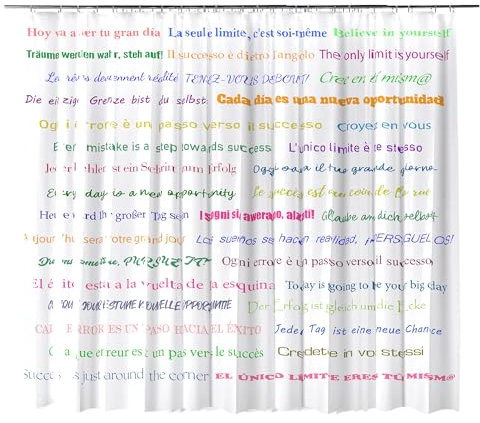 Hoy va a ser tu gran día La seule limite, c'est soi-même Believe in yourself
Träume werden wahr, steh auf! Il successo è dietro l'angolo The only limit is yourself
Le rêves deviennent réalité TENEZ-VOUS DEBOUT! Cree en ti mism@
Die einzige Grenze bist du selbst. Cada día es una nueva oportunidad
Ogni errore è un passo verso il successo Croyez en vous
Every mistake is a step towards success L'unico limite è te stesso
Jeder Fehler ist ein Schritt zum Erfolg Oggi sarà il tuo grande giorno
Every day is a new opportunity Le succès est au coin de la rue
Heute wird Ihr großer Tag sein I sogni si avverano, alzati! Glaube an dich selbst
jour 'hui sera votre grand jour Los sueños se hacen realidad, ¡PERSÍGUELOS!
Ogni errore è un passo verso il successo
El éxito está a la vuelta de la esquina Today is going to be your big day
JOUR EST UNE NOUVELLE OPPORTUNITÉ Der Erfolg ist gleich um die Ecke
CADA ERROR ES UN PASO HACIA EL ÉXITO Jeder Tag ist eine neue Chance
Chaque erreur est un pas vers le succès Credete in voi stessi
Success is just around the corner EL ÚNICO LÍMITE ERES TÚ MISM@